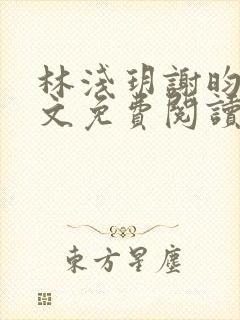 林淺玥謝昀
文免費閱讀
東方星塵